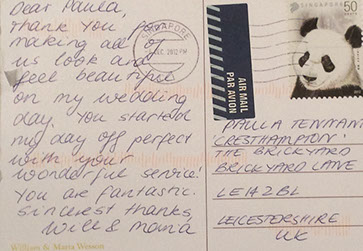 Dear Paula,
Thank you for
making all of
us look and
feel beautiful
on my wedding
day. You started
my day off perfect
with your
wonderful service!
You are fantastic.
Sincerest thanks,
Will & Maria
William & Marta Wesson
SINGAPORE
DEC 2012 PM
AIR MAIL
PAR AVION
SINGAPORE 50
PAULA TENNANT
'CRESTHAMPTON'
THE BRICKYARD
BRICKYARD LANE
LE14 2BL
LEICESTERSHIRE
UK